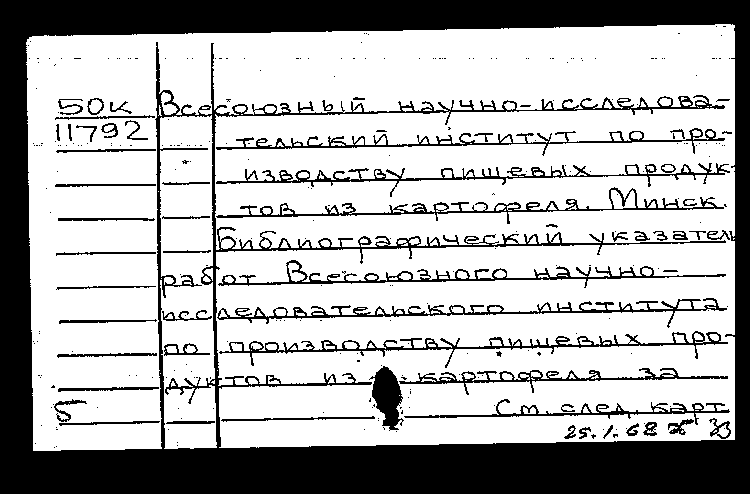 50к Всесоюзный научно-исследова-
11792 тельский институт по про-
изводству пищевых продук-
тов из картофеля. Минск.
Библиографический указатель
работ Всесоюзного научно-
исследовательского института
по производству пищевых про-
дуктов из картофеля за
Б См. след. карт.
25.1.68